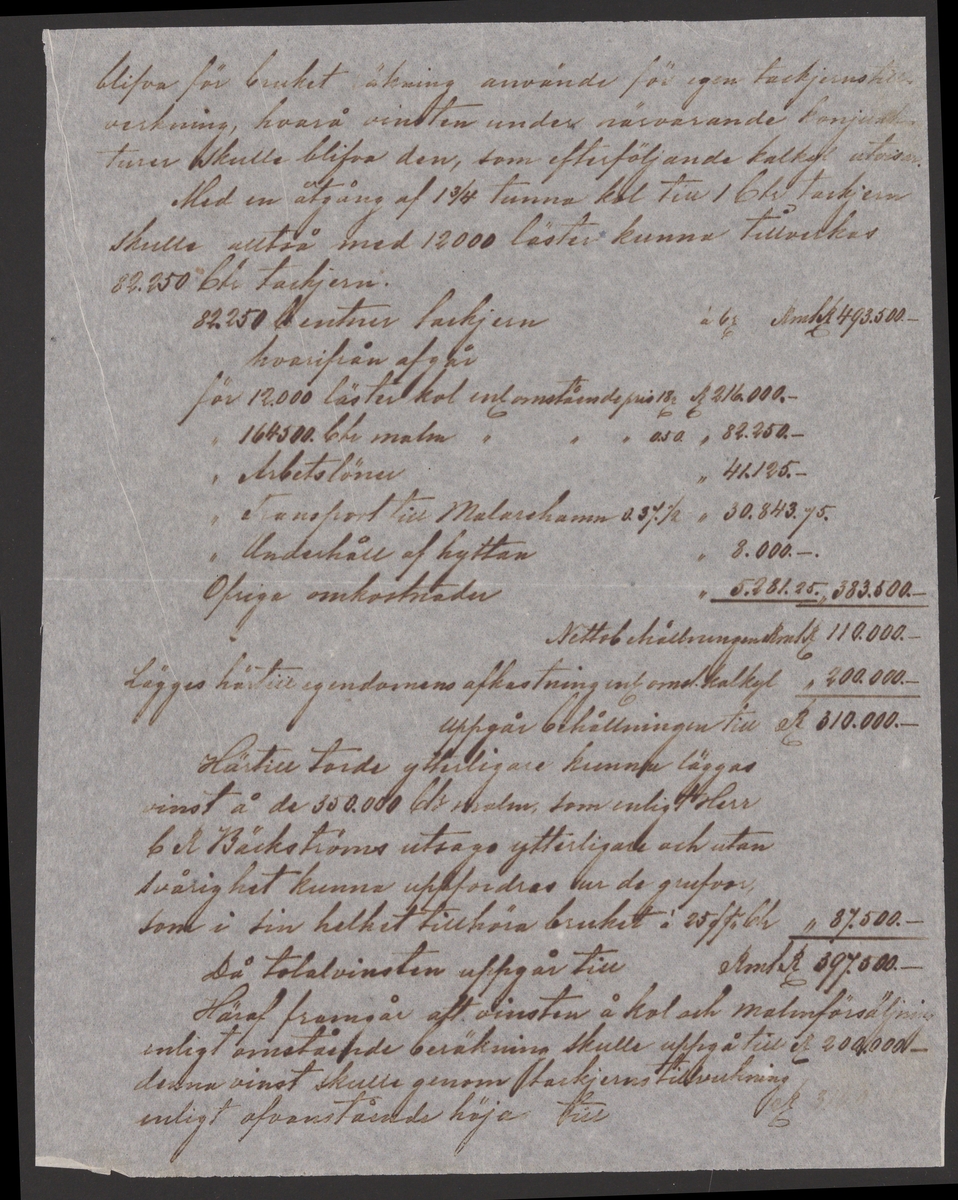 blifva för bruket räkning använde för egen tackjernstill-
verkning, hvarå vinsten under närvarande Konjunk-
turer skulle blifva den, som efterföljande kalkyl utvisar.
Med en åtgång af 1 3/4 tunna kol till 1 Ctr tackjern
skulle alltså med 12000 läster kunna tillverkas
82.250 Ctr tackjern.
82.250 Centner tackjern à 6 Rmt R 493.500.—
hvarifrån afgår
för 12.000 läster kol enl omstående pris 18 R 216.000.—
" 164500. Ctr malm " " " 0.50. " 82.250.—
" Arbetslöner " 41.125.—
" Transport till Malarehamn 0.37.1/2 " 30.843.75.
" Underhåll af hyttan " 8.000.—.
Öfriga omkostnader " 5.281.25. " 383.500.—
Nettobehållningen Rmt R 110.000.—
Lägges härtill egendomens afkastning enl omst. kalkyl " 200.000.—
uppgår behållningen till R 310.000.—
Härtill torde ytterligare kunna läggas
vinst å de 350.000 Ctr malm, som enligt Herr
C R Bäckströms utsago ytterligare och utan
svårighet kunna uppfordras ur de grufvor,
som i sin helhet tillhöra bruket à 25 Ctr " 87.500.—
Då totalvinsten uppgår till Rmt R 397.500.—
Häraf framgår att vinsten å kol och malmförsäljning
enligt omstående beräkning skulle uppgå till R 200.000—
denna vinst skulle genom tackjernstillverkning
enligt ofvanstående höja till R